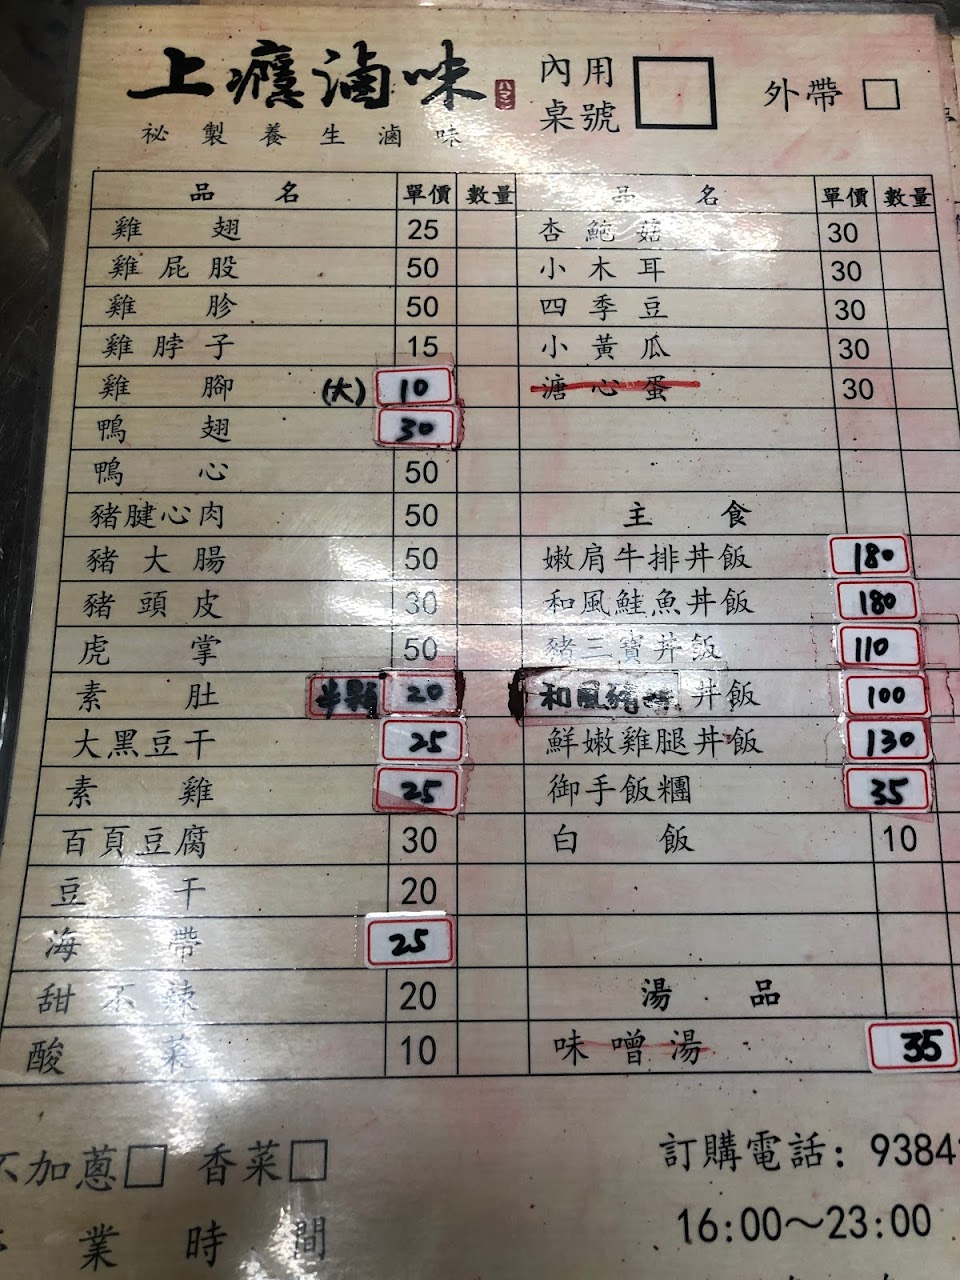 上癮滷味 ハマン
內用桌號 外帶
祕製養生滷味
品名 單價 數量 品名 單價 數量
雞翅 25 杏鮑菇 30
雞屁股 50 小木耳 30
雞胗 50 四季豆 30
雞脖子 15 小黃瓜 30
雞腳 (大) 10 溏心蛋 30
鴨翅 30
鴨心 50
豬腱心肉 50 主食
豬大腸 50 嫩肩牛排丼飯 180
豬頭皮 30 和風鮭魚丼飯 180
虎掌 50 豬三寶丼飯 110
素肚 半顆 20 和風 丼飯 100
大黑豆干 25 鮮嫩雞腿丼飯 130
素雞 25 御手飯糰 35
百頁豆腐 30 白飯 10
豆干 20
海帶 25
甜不辣 20 湯品
酸菜 10 味噌湯 35
不加蔥 香菜 訂購電話: 9384
業時間 16:00~23:00